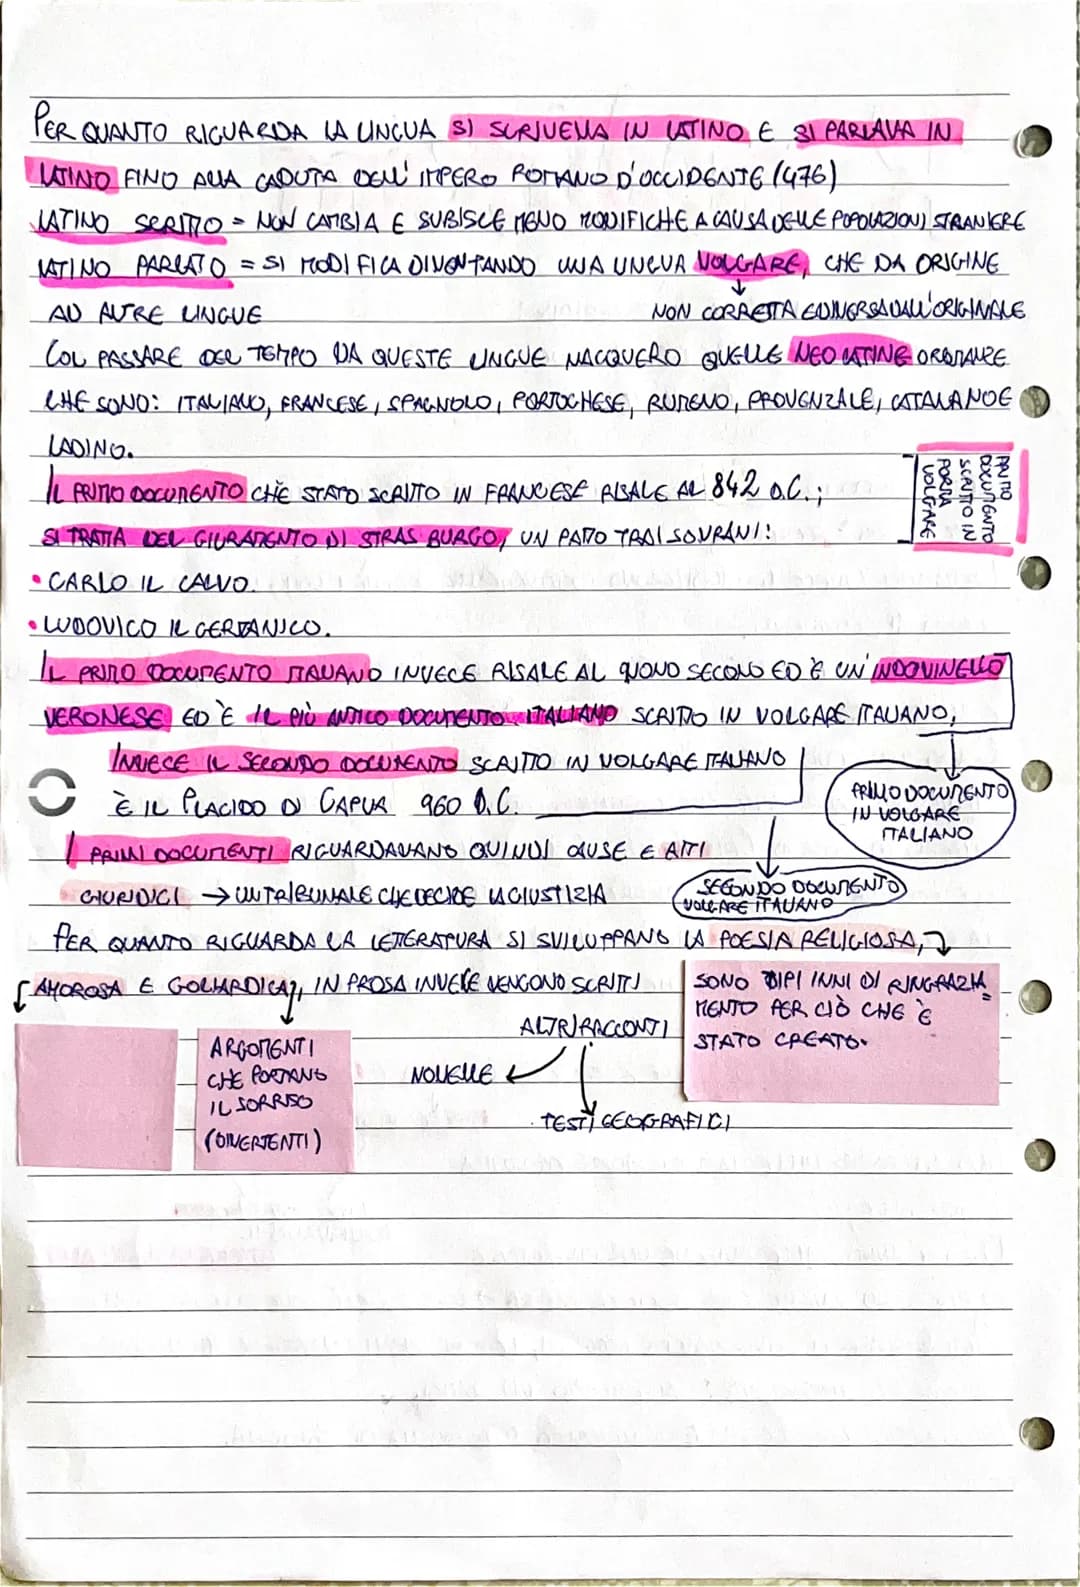 PER QUANTO RIGUARDA LA LINGUA SI SCRIVEVA IN LATINO E SI PARLAVA IN
LATINO FINO ALLA CADUTA DELL'IMPERO ROMANO D'OCCIDENTE (476)
LATINO SCRITTO = NON CAMBIA E SUBISCE MENO MODIFICHE A CAUSA DELLE POPOLAZIONI STRANIERE
LATINO PARLATO = SI MODIFICA DIVENTANDO UNA LINGUA VOLGARE, CHE DA ORIGINE
AD ALTRE LINGUE
NON CORRETTA E DIVERSA DALL'ORIGINALE
COL PASSARE DEL TEMPO DA QUESTE LINGUE NACQUERO QUELLE NEO LATINE
CHE SONO: ITALIANO, FRANCESE, SPAGNOLO, PORTOGHESE, RUMENO, PROVENZALE, CATALANO E
LADINO.
IL PRIMO DOCUMENTO CHE STATO SCRITTO IN FRANCESE RISALE AL 842 D.C.;
PRIMO
DOCUMENTO
SCRITTO IN
FORMA
VOLGARE
SI TRATTA DEL GIURAMENTO DI STRASBURGO, UN PATTO TRA I SOVRANI:
• CARLO IL CALVO.
• LUDOVICO IL GERMANICO.
IL PRIMO DOCUMENTO ITALIANO INVECE RISALE AL NONO SECOLO ED È UN INDOVINELLO
VERONESE ED È IL PIÙ ANTICO DOCUMENTO ITALIANO SCRITTO IN VOLGARE ITALIANO,
INVECE IL SECONDO DOCUMENTO SCRITTO IN VOLGARE ITALIANO
È IL PLACIDO DI CAPUA 960 D.C.
PRIMO DOCUMENTO
IN VOLGARE
ITALIANO
I PRIMI DOCUMENTI RIGUARDAVANO QUINDI CAUSE E ATTI
GIURIDICI → UN TRIBUNALE CHE DECIDE LA GIUSTIZIA
SECONDO DOCUMENTO
VOLGARE ITALIANO
PER QUANTO RIGUARDA LA LETTERATURA SI SVILUPPANO LA POESIA RELIGIOSA,
AMOROSA E GOLIARDICA, IN PROSA INVECE VENGONO SCRITTI
SONO TIPI INNI DI RINGRAZIA
MENTO PER CIÒ CHE È
STATO CREATO.
ALTRI RACCONTI
ARGOMENTI
CHE PORTANO
IL SORRISO
(DIVERTENTI)
NOVELLE
TESTI GEOGRAFICI